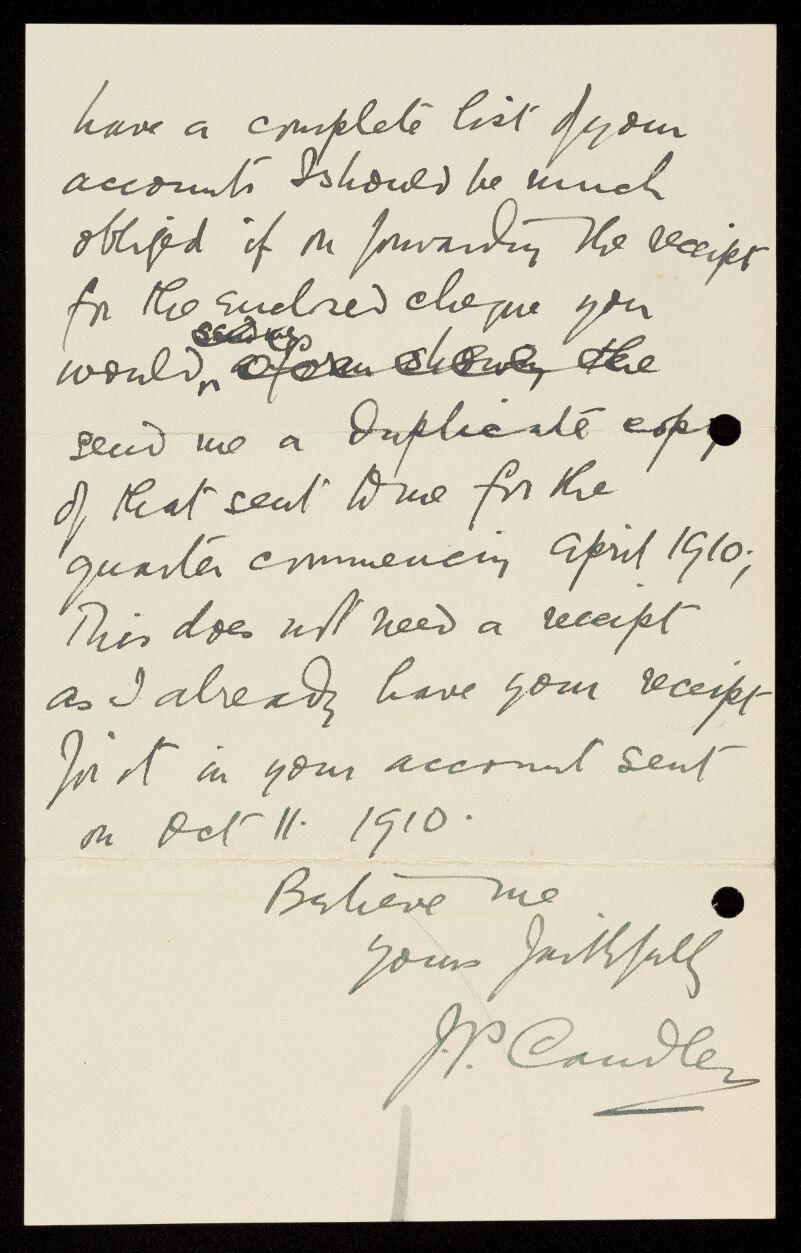 have a complete list of your
accounts I should be much
obliged if on forwarding the receipt
for the enclosed cheque you
send me
would a form showing the
send me a duplicate copy
of that sent to me for the
quarter commencing April 1910;
This does not need a receipt
as I already have your receipt
for it in your account sent
on Oct 11. 1910.
Believe me
yours faithfully
J.P. Candler